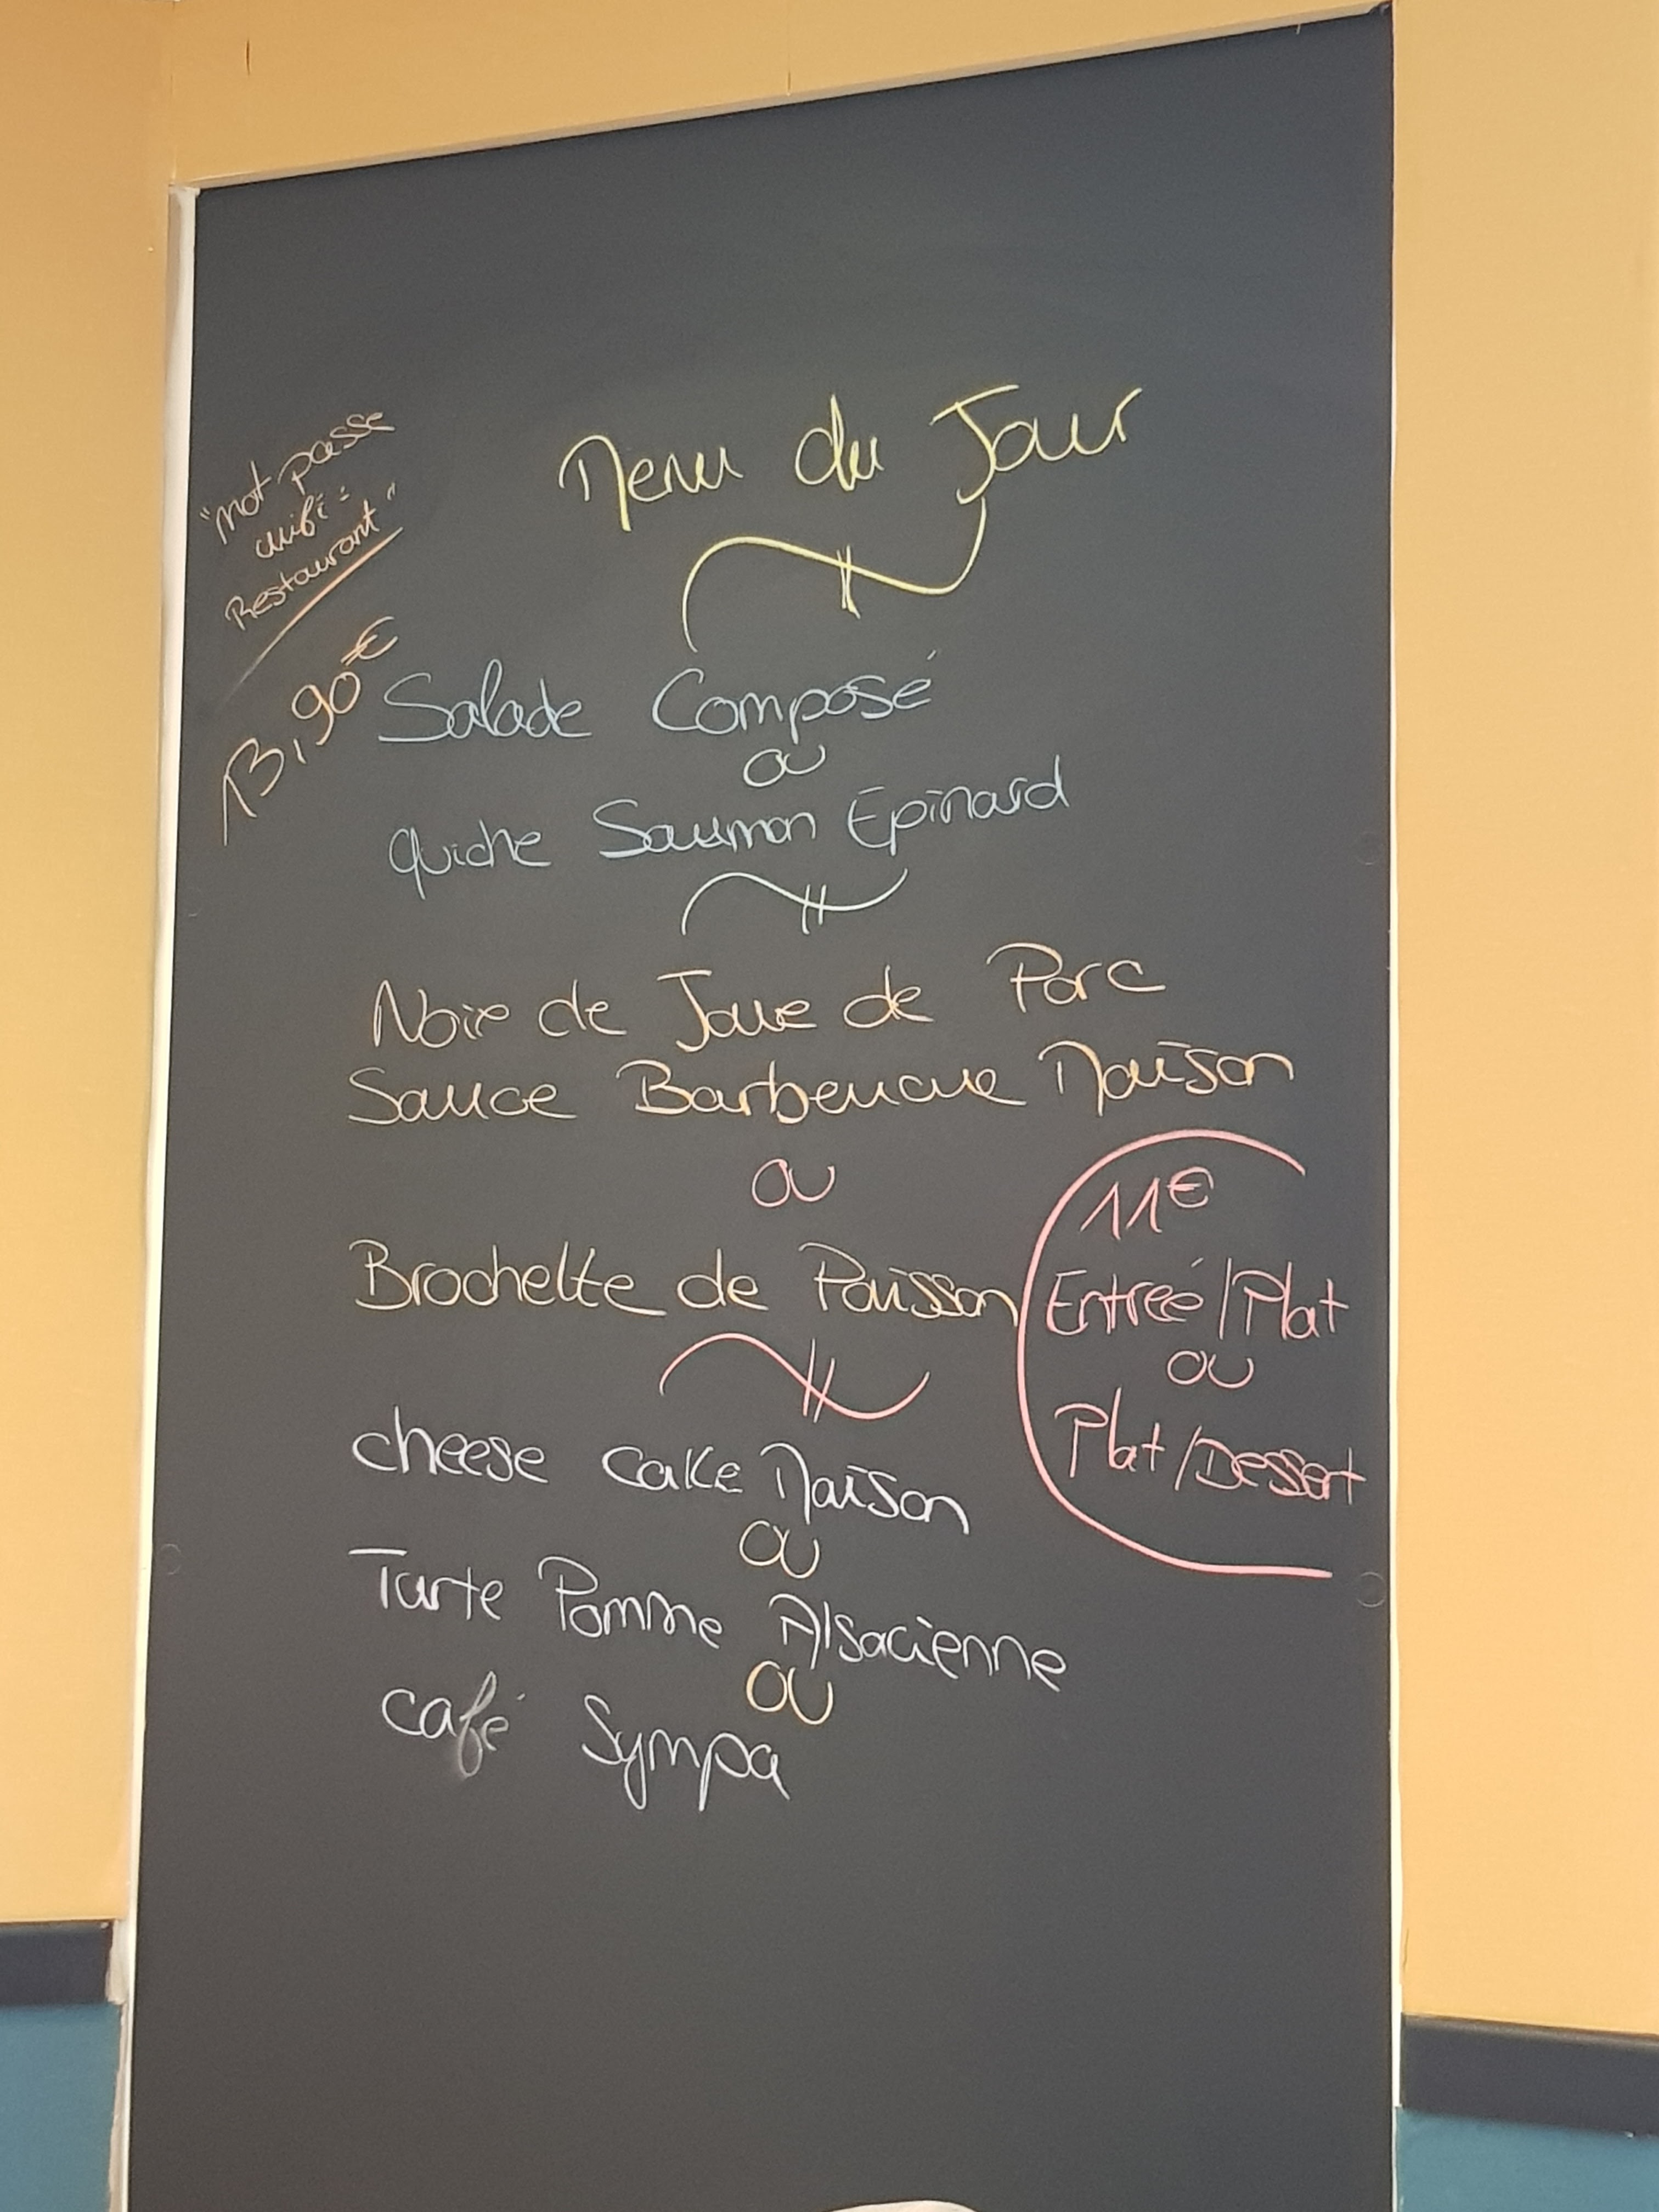 Menu du Jour
"mot passe
wifi :
Restaurant"
13,90€
Salade Composé
ou
quiche Saumon Epinard
Noix de Joue de Porc
Sauce Barbeucue Maison
ou
Brochette de Poisson
11€
Entreé/Plat
ou
Plat/Dessert
cheese cake Maison
ou
Tarte Pomme Alsacienne
ou
café Sympa